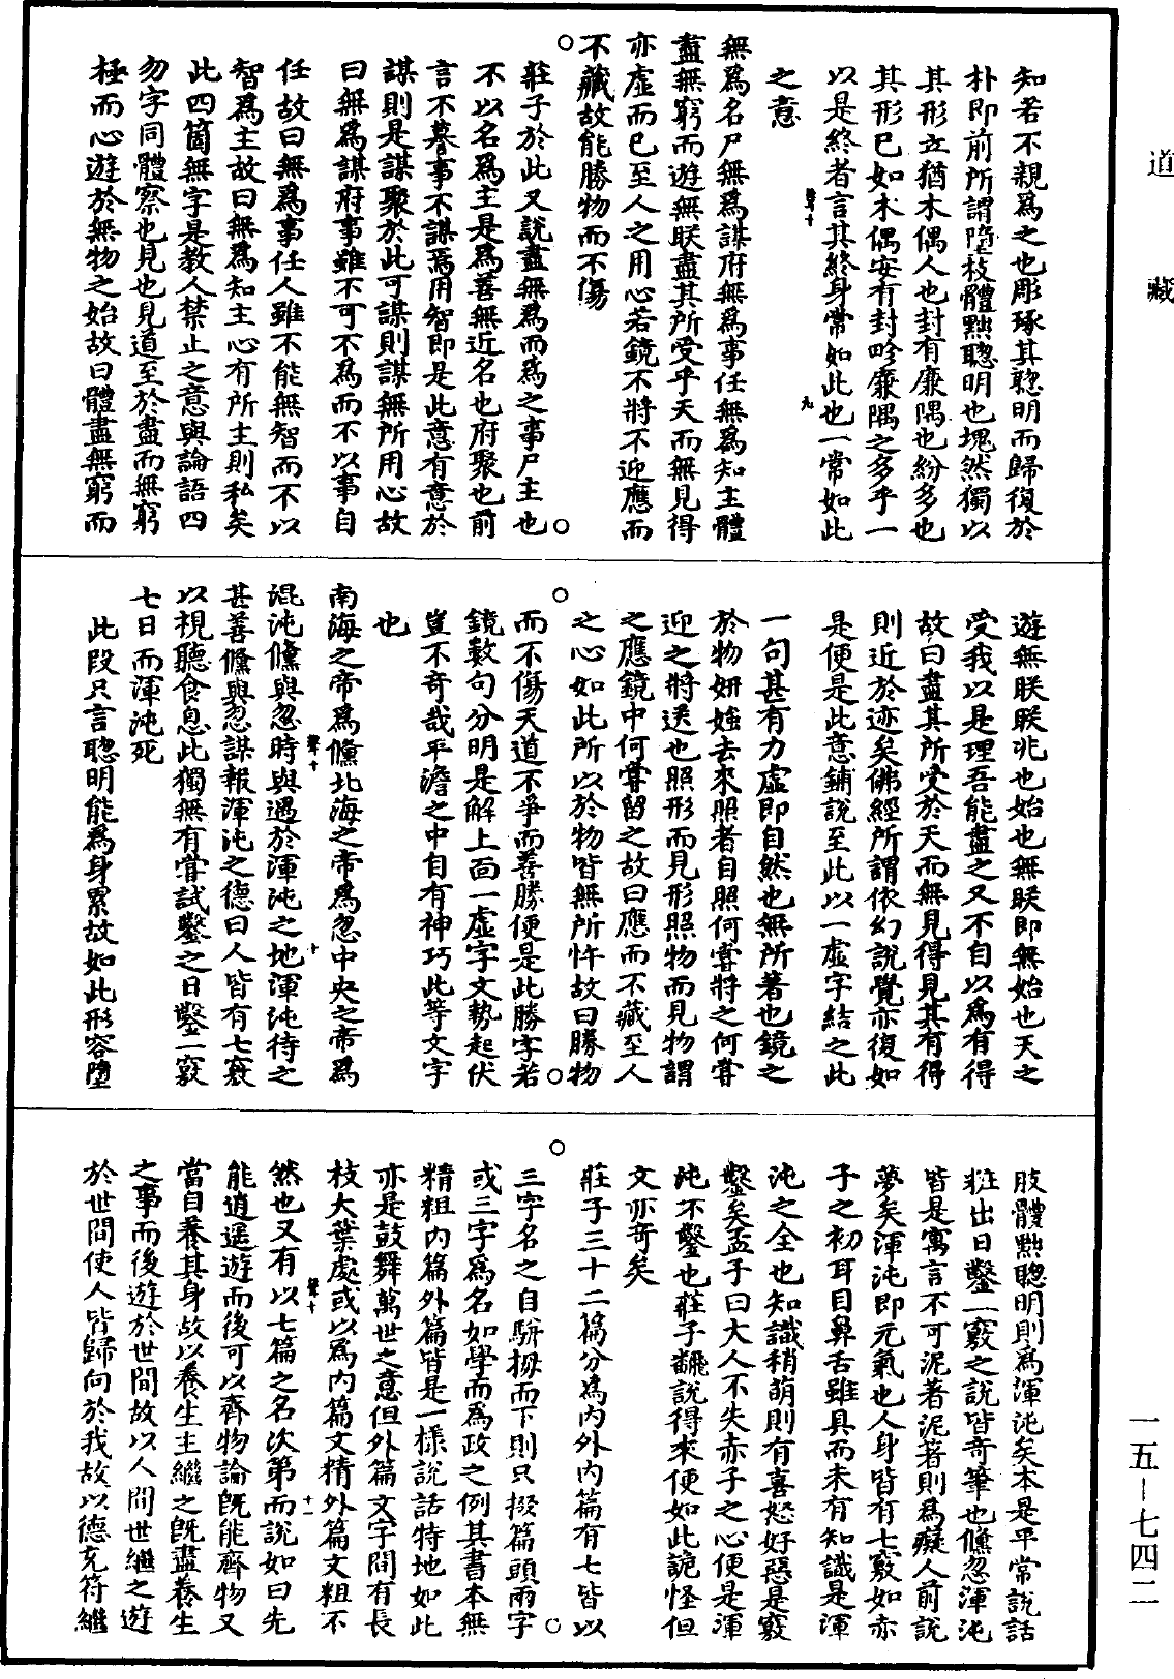 道藏
知若不親爲之也彫琢其聰明而歸復於
朴即前所謂墮枝體黜聰明也塊然獨以
其形立猶木偶人也封有廉隅也紛多也
其形已如木偶安有封畛廉隅之多乎一
以是終者言其終身常如此也一常如此
之意
無爲名尸無爲謀府無爲事任無爲知主體
盡無窮而遊無朕盡其所受乎天而無見得
亦虛而已至人之用心若鏡不將不迎應而
不藏故能勝物而不傷
莊子於此又說盡無爲而爲之事尸主也
不以名爲主是爲善無近名也府聚也前
言不謩事不謀焉用智即是此意有意於
謀則是謀聚於此可謀則謀無所用心故
曰無爲謀府事雖不可不爲而不以事自
任故曰無爲事任人雖不能無智而不以
智爲主故曰無爲知主心有所主則私矣
此四箇無字是教人禁止之意與論語四
勿字同體察也見也見道至於盡而無窮
極而心遊於無物之始故曰體盡無窮而
遊無朕朕兆也始也無朕即無始也天之
受我以是理吾能盡之又不自以爲有得
故曰盡其所受於天而無見得見其有得
則近於迹矣佛經所謂依幻說覺亦復如
是便是此意鋪說至此以一虛字結之此
一句甚有力虛即自然也無所著也鏡之
於物妍媸去來照者自照何嘗將之何嘗
迎之將送也照形而見形照物而見物謂
之應鏡中何嘗留之故曰應而不藏至人
之心如此所以於物皆無所忤故曰勝物
而不傷天道不爭而善勝便是此勝字若
鏡數句分明是解上面一虛字文勢起伏
豈不奇哉平澹之中自有神巧此等文字
也
南海之帝爲儵北海之帝爲忽中央之帝爲
混沌儵與忽時與遇於渾沌之地渾沌待之
甚善儵與忽謀報渾沌之德曰人皆有七竅
以視聽食息此獨無有嘗試鑿之日鑿一竅
七日而渾沌死
此段只言聰明能爲身累故如此形容墮
肢體黜聰明則爲渾沌矣本是平常說話
粧出日鑿一竅之說皆奇筆也儵忽渾沌
皆是寓言不可泥著泥著則爲癡人前說
夢矣渾沌即元氣也人身皆有七竅如赤
子之初耳目鼻舌雖具而未有知識是渾
沌之全也知識稍萌則有喜怒好惡是竅
鑿矣孟子曰大人不失赤子之心便是渾
沌不鑿也莊子翻說得來便如此詭怪但
文亦奇矣
莊子三十二篇分爲內外內篇有七皆以
三字名之自駢拇而下則只掇篇頭兩字
或三字爲名如學而爲政之例其書本無
精粗內篇外篇皆是一樣說話特地如此
亦是鼓舞萬世之意但外篇文字間有長
枝大葉處或以爲內篇文精外篇文粗不
然也又有以七篇之名次第而說如曰先
能逍遙遊而後可以齊物論旣能齊物又
當自養其身故以養生主繼之旣盡養生
之事而後遊於世間故以人間世繼之遊
於世間使人皆歸向於我故以德充符繼
一五—七四二